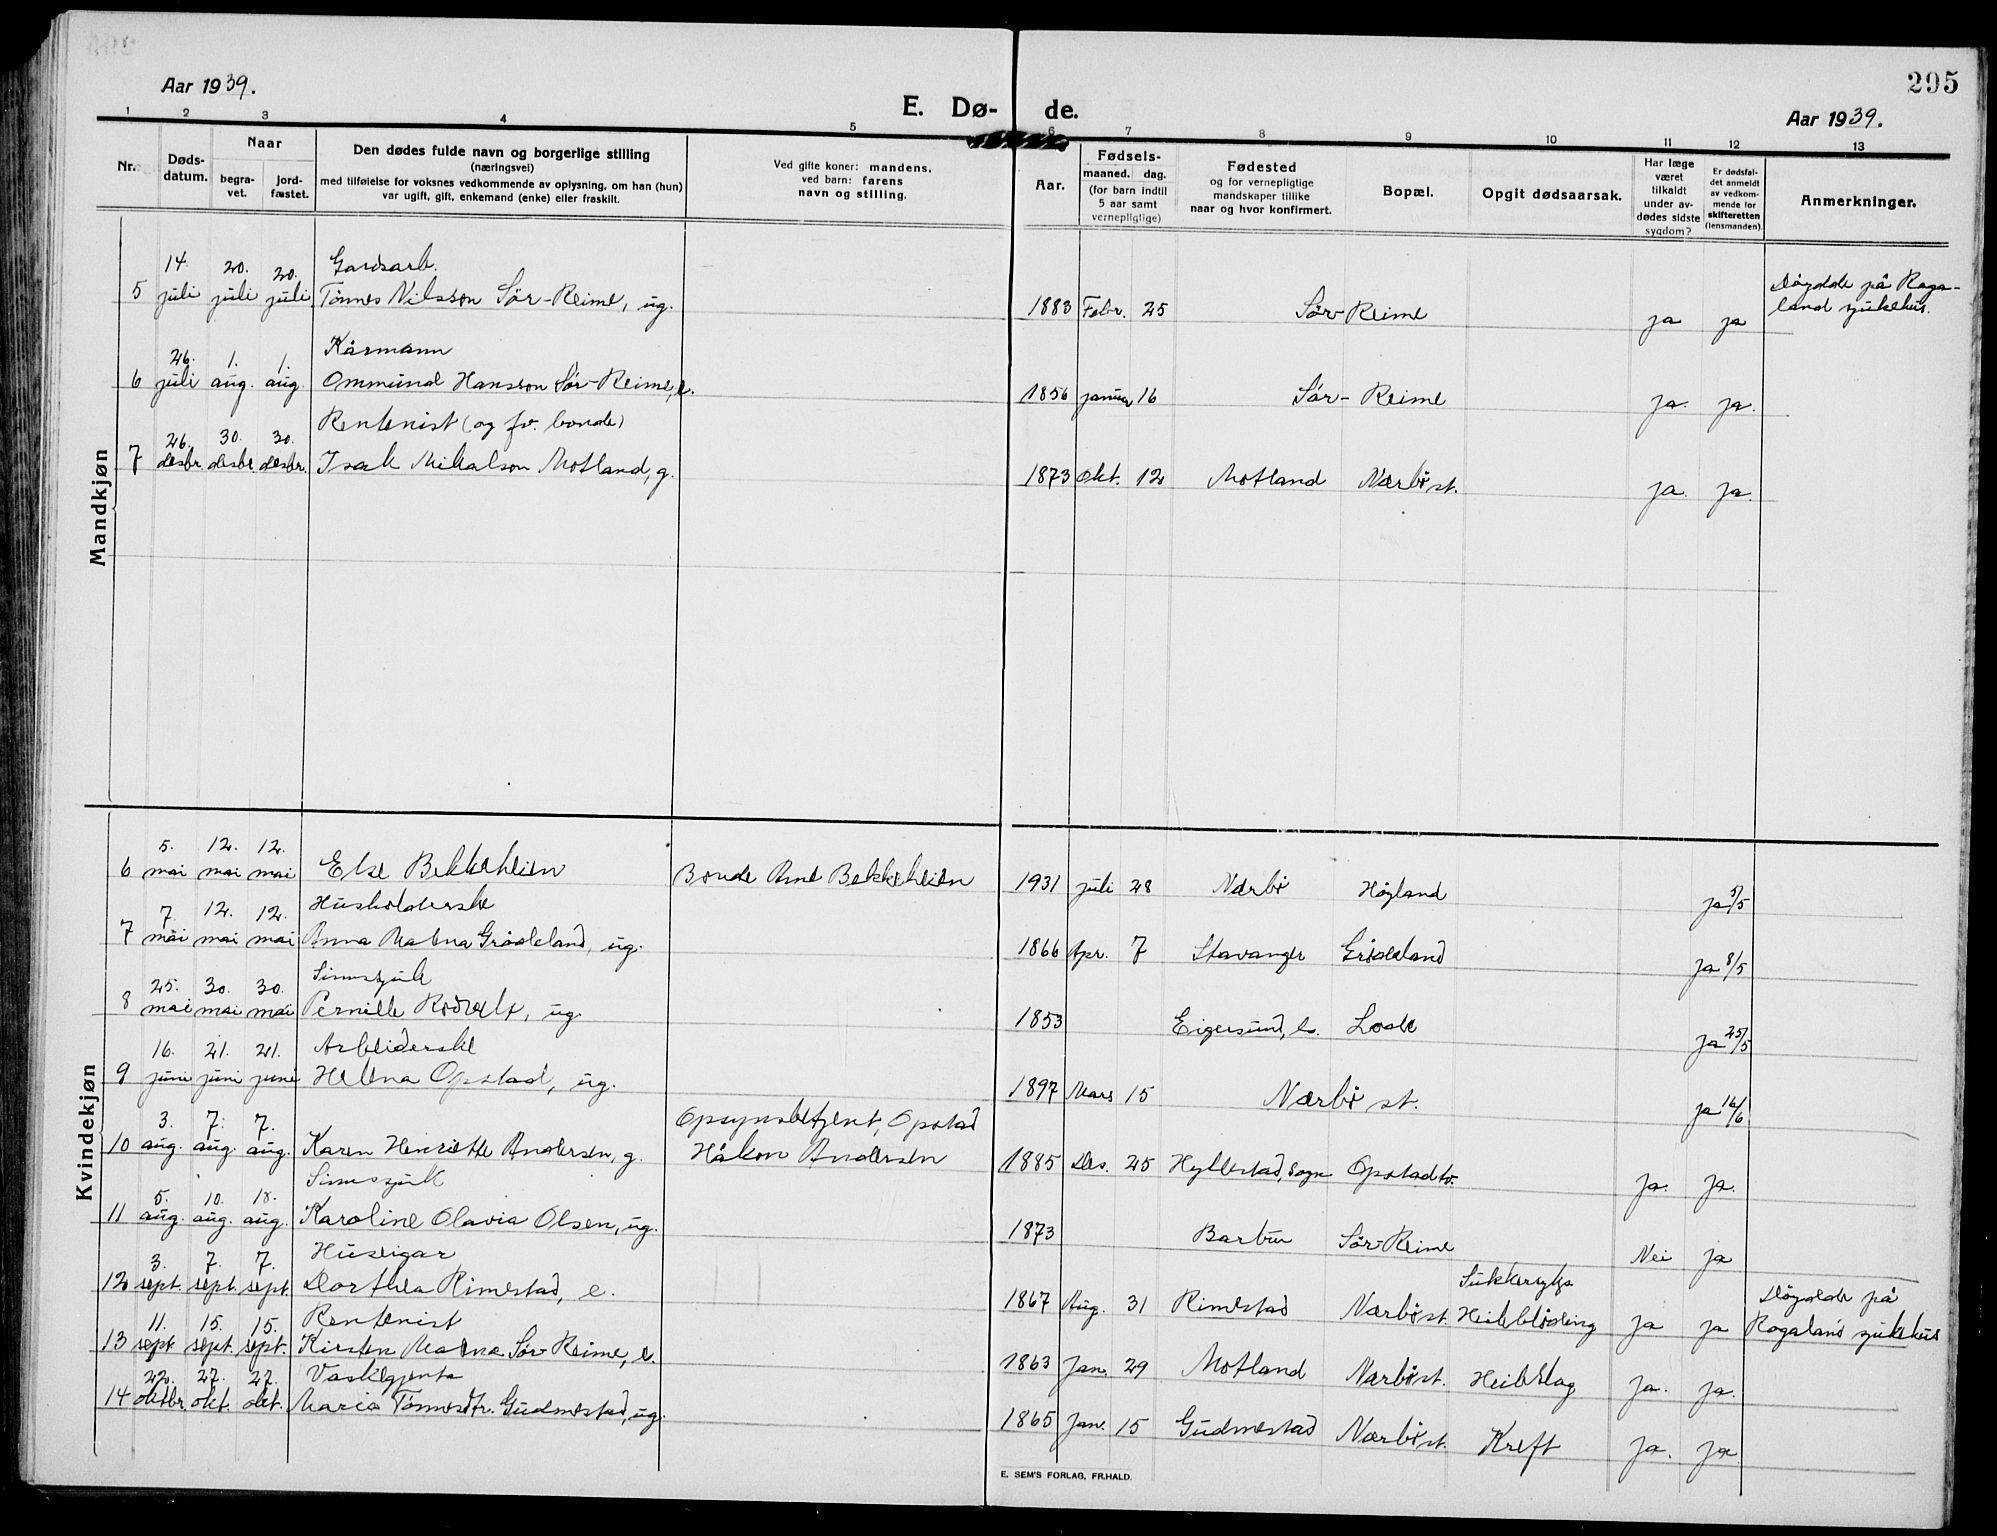 295
Aar 1939.
E. Dø-
de.
Aar 1939.
1 2 3 4 5 6 7 8 9 10 11 12 13
Nr.
Døds-
datum.
Naar
begra-
vet.
jord-
fæstet.
Den dødes fulde navn og borgerlige stilling
(næringsvei)
med tilføielse for voksnes vedkommende av oplysning, om han (hun)
var ugift, gift, enkemand (enke) eller fraskilt.
Ved gifte koner: mandens,
ved barn: farens
navn og stilling.
Aar.
Fødsels-
maaned. dag.
(for barn indtil
5 aar samt
vernepligtige)
Fødested
og for vernepligtige
mandskaper tillike
naar og hvor konfirmert.
Bopæl.
Opgit dødsaarsak.
Har læge
været
tilkaldt
under av-
dødes sidste
sygdom?
Er dødsfal-
det anmeldt
av vedkom-
mende for
skifteretten
(lensmanden).
Anmerkninger.
Mandkjøn
14. 20. 20. Gardsarb. Døydde på Roga-
5 juli juli juli Tønnes Nilsson Sør-Reime, ug. 1883 Febr. 25 Sør-Reime ja ja land sjukehus.
26. 1. 1. Kårmann
6 juli aug. aug. Ommund Hansson Sør-Reime, e. 1856 januar 16 Sør-Reime ja. ja.
26. 30. 30. Rentenist (og fv. bonde)
7 desbr. desbr. desbr. Isak Mikalson Motland, g. 1873 Okt. 12 Motland Nærbø st. ja. ja.
Kvindekjøn
5. 12. 12.
6 mai mai mai Else Bekkeheien Bonde Arne Bekkeheien 1931 juli 28 Nærbø Høyland ja 5/5
7. 12. 12. Husholderske
7 mai mai mai Anna Malena Grødeland, ug. 1866 Apr. 7 Stavanger Grødeland ja 8/5
25. 30. 30. Sinnssjuk
8 mai mai mai Pernille, ug. 1853 Eigersund, l. Lode ja 25/5
16. 21. 21. Arbeiderske
9 juni juni juni Helena Opstad, ug. 1897 Mars 15 Nærbø st. ja 16/6
3. 7. 7. Opsynsbetjent, Opstad
10 aug. aug. aug. Karen Henriette Andersen, g. Håkon Andersen 1885 Des. 25 Hyllestad, Sogn Opstad tv. ja. ja.
5. 10. 10. Sinnssjuk
11 aug. aug. aug. Karoline Olavia Olsen, ug. 1873 Barbu Sør-Reime Nei ja
3. 7. 7. Huseigar Sukkersyke Døydde på
12 sept. sept. sept. Dorthea Rimestad, e. 1867 Aug. 31 Rimestad Nærbø st. Heilebløding ja ja Rogaland sjukehus
11. 15. 15. Rentenist
13 sept. sept. sept. Kirsten Malena Sør-Reime, e. 1863 Jan. 29 Motland Nærbø st. Heileslag ja. ja.
22. 27. 27. Vaskegjente
14 oktbr. okt. okt. Maria Tønnesdtr. Gudmestad, ug. 1865 Jan. 15 Gudmestad Nærbø st. Kreft ja. ja.
E. SEM'S FORLAG, FR.HALD.